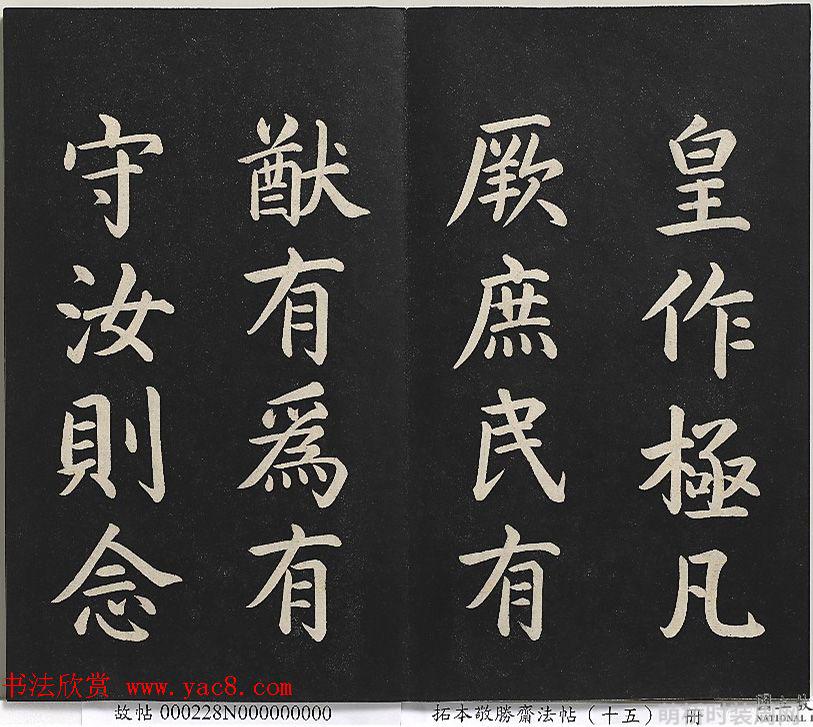 皇作極凡
厥庶民有
猷有爲有
守汝則念
书法欣赏 www.yac8.com
故帖 000228N000000000
拓本敬勝齋法帖（十五） 册
NATIONAL